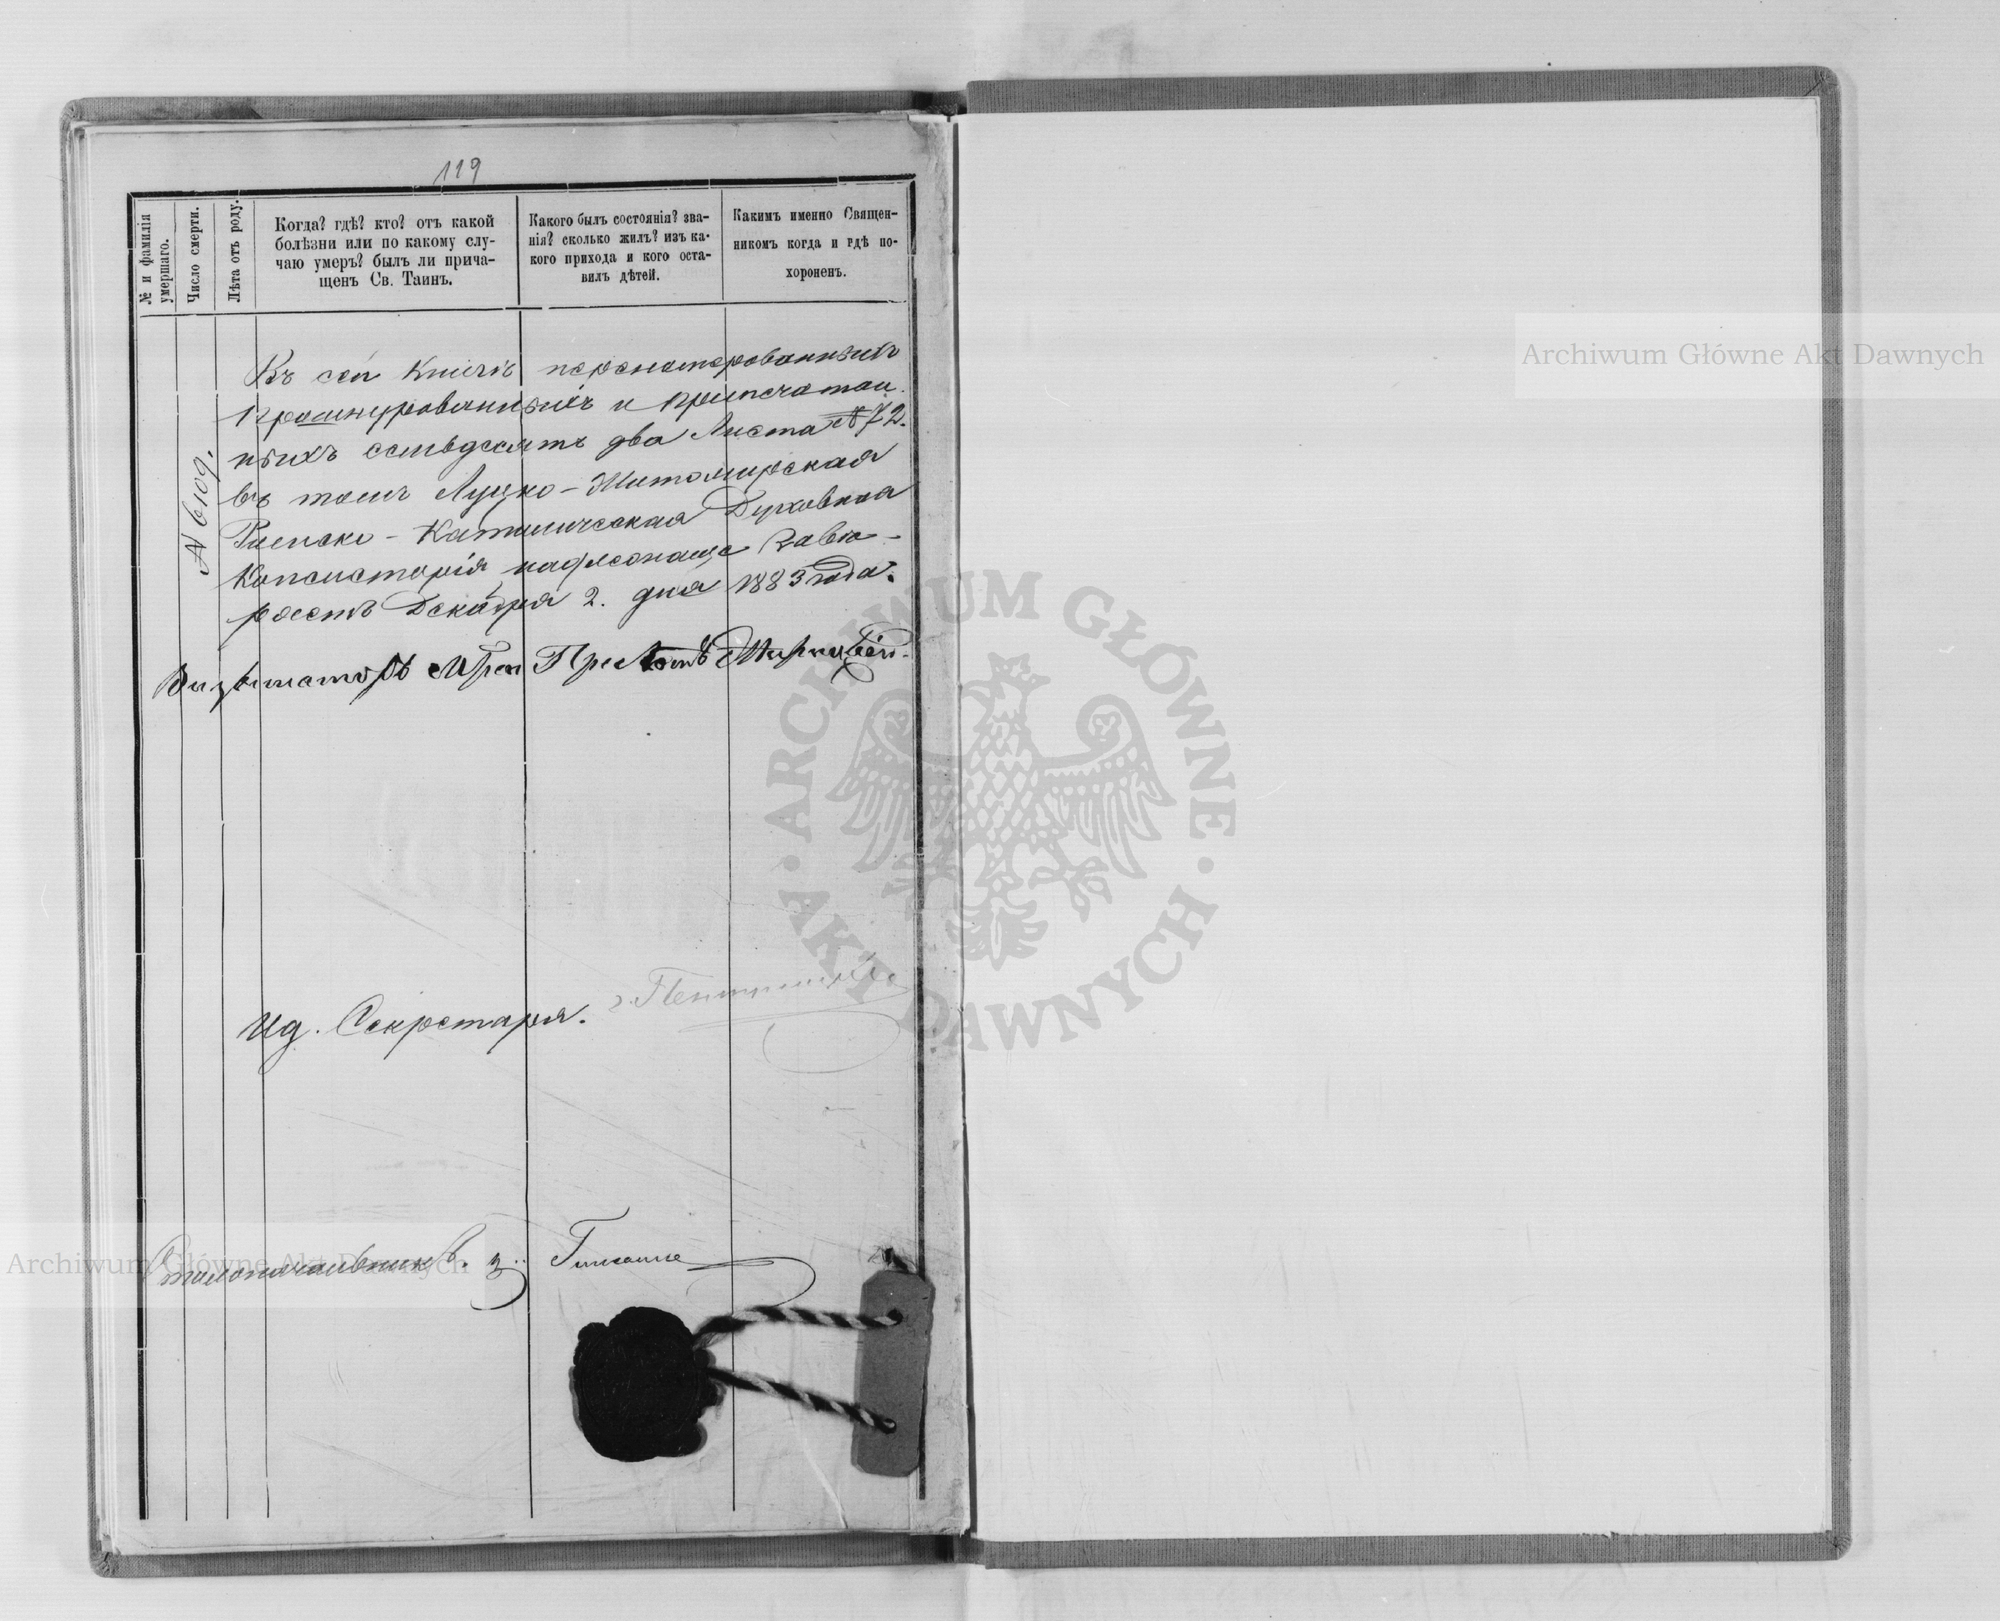 119
№ и фамилія
умершаго.
Число смерти.
Лѣта отъ роду.
Когда? гдѣ? кто? отъ какой
болѣзни или по какому слу-
чаю умеръ? былъ ли прича-
щенъ Св. Таинъ.
Какого былъ состоянія? зва-
нія? сколько жилъ? изъ ка-
кого прихода и кого оста-
вилъ дѣтей.
Какимъ именно Священ-
никомъ когда и гдѣ по-
хороненъ.
№ 6109.
Въ сей Книгѣ перенотерованныхъ
прошнурованныхъ и припечатан
ныхъ семьдесятъ два Листа № 72.
въ томъ Луцко-Житомирская
Римско-Католическая Духовная
Консисторія надлежаще завѣ-
ряетъ Декабря 2. дня 1883 года.
Визитаторъ
Ид. Секретаря.
Столоначальникъ.
Archiwum Główne Akt Dawnych
Archiwum Główne Akt Dawnych
ARCHIWUM GŁÓWNE AKT DAWNYCH